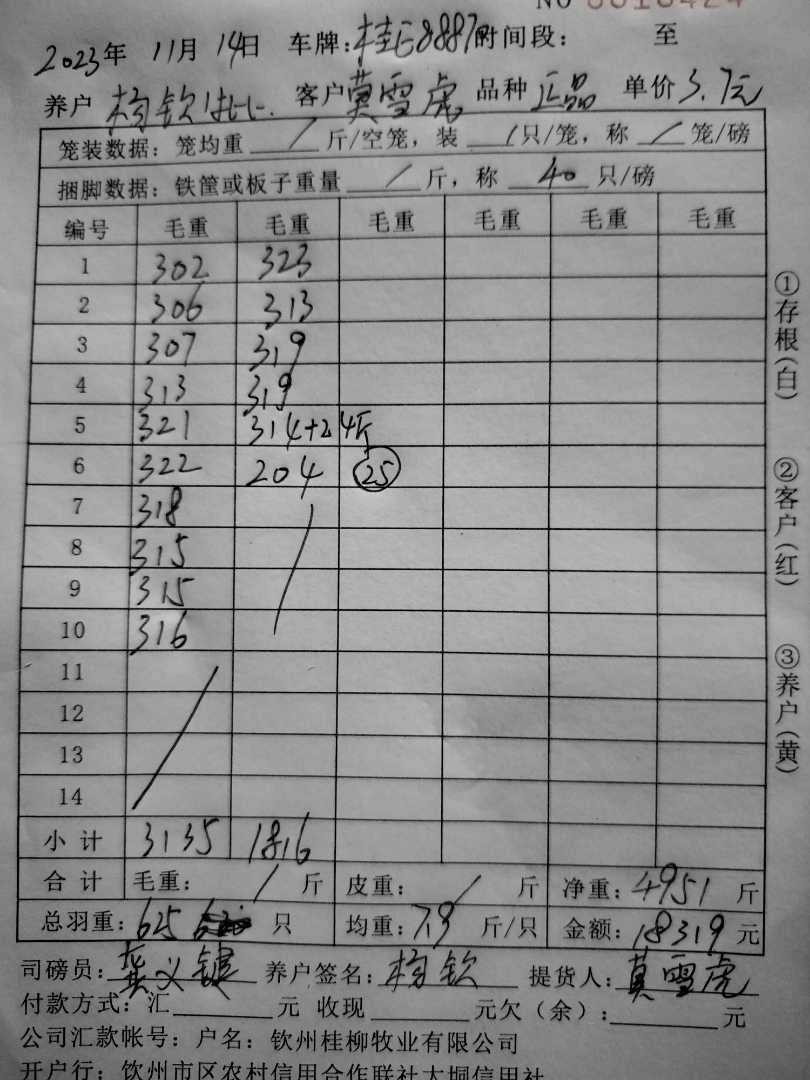 NO 0010424
2023年 11月 14日 车牌:桂E8887 时间段: 至
养户 杨钦 客户 莫雪虎 品种 正品 单价 3.7元
笼装数据: 笼均重 / 斤/空笼, 装 / 只/笼, 称 / 笼/磅
捆脚数据: 铁筐或板子重量 / 斤, 称 40 只/磅
编号 毛重 毛重 毛重 毛重 毛重 毛重
1 302 323
2 306 313
3 307 319
4 313 319
5 321 314+24斤
6 322 204 25
7 318
8 315
9 315
10 316
11
12
13
14
小计 3135 1816
合计 毛重: / 斤 皮重: / 斤 净重: 4951 斤
总羽重: 625 只 均重: 7.9 斤/只 金额: 18319 元
司磅员: 龚义键 养户签名: 杨钦 提货人: 莫雪虎
付款方式: 汇 元 收现 元欠(余): 元
公司汇款帐号: 户名: 钦州桂柳牧业有限公司
开户行: 钦州市区农村信用合作联社大垌信用社
①存根(白)
②客户(红)
③养户(黄)